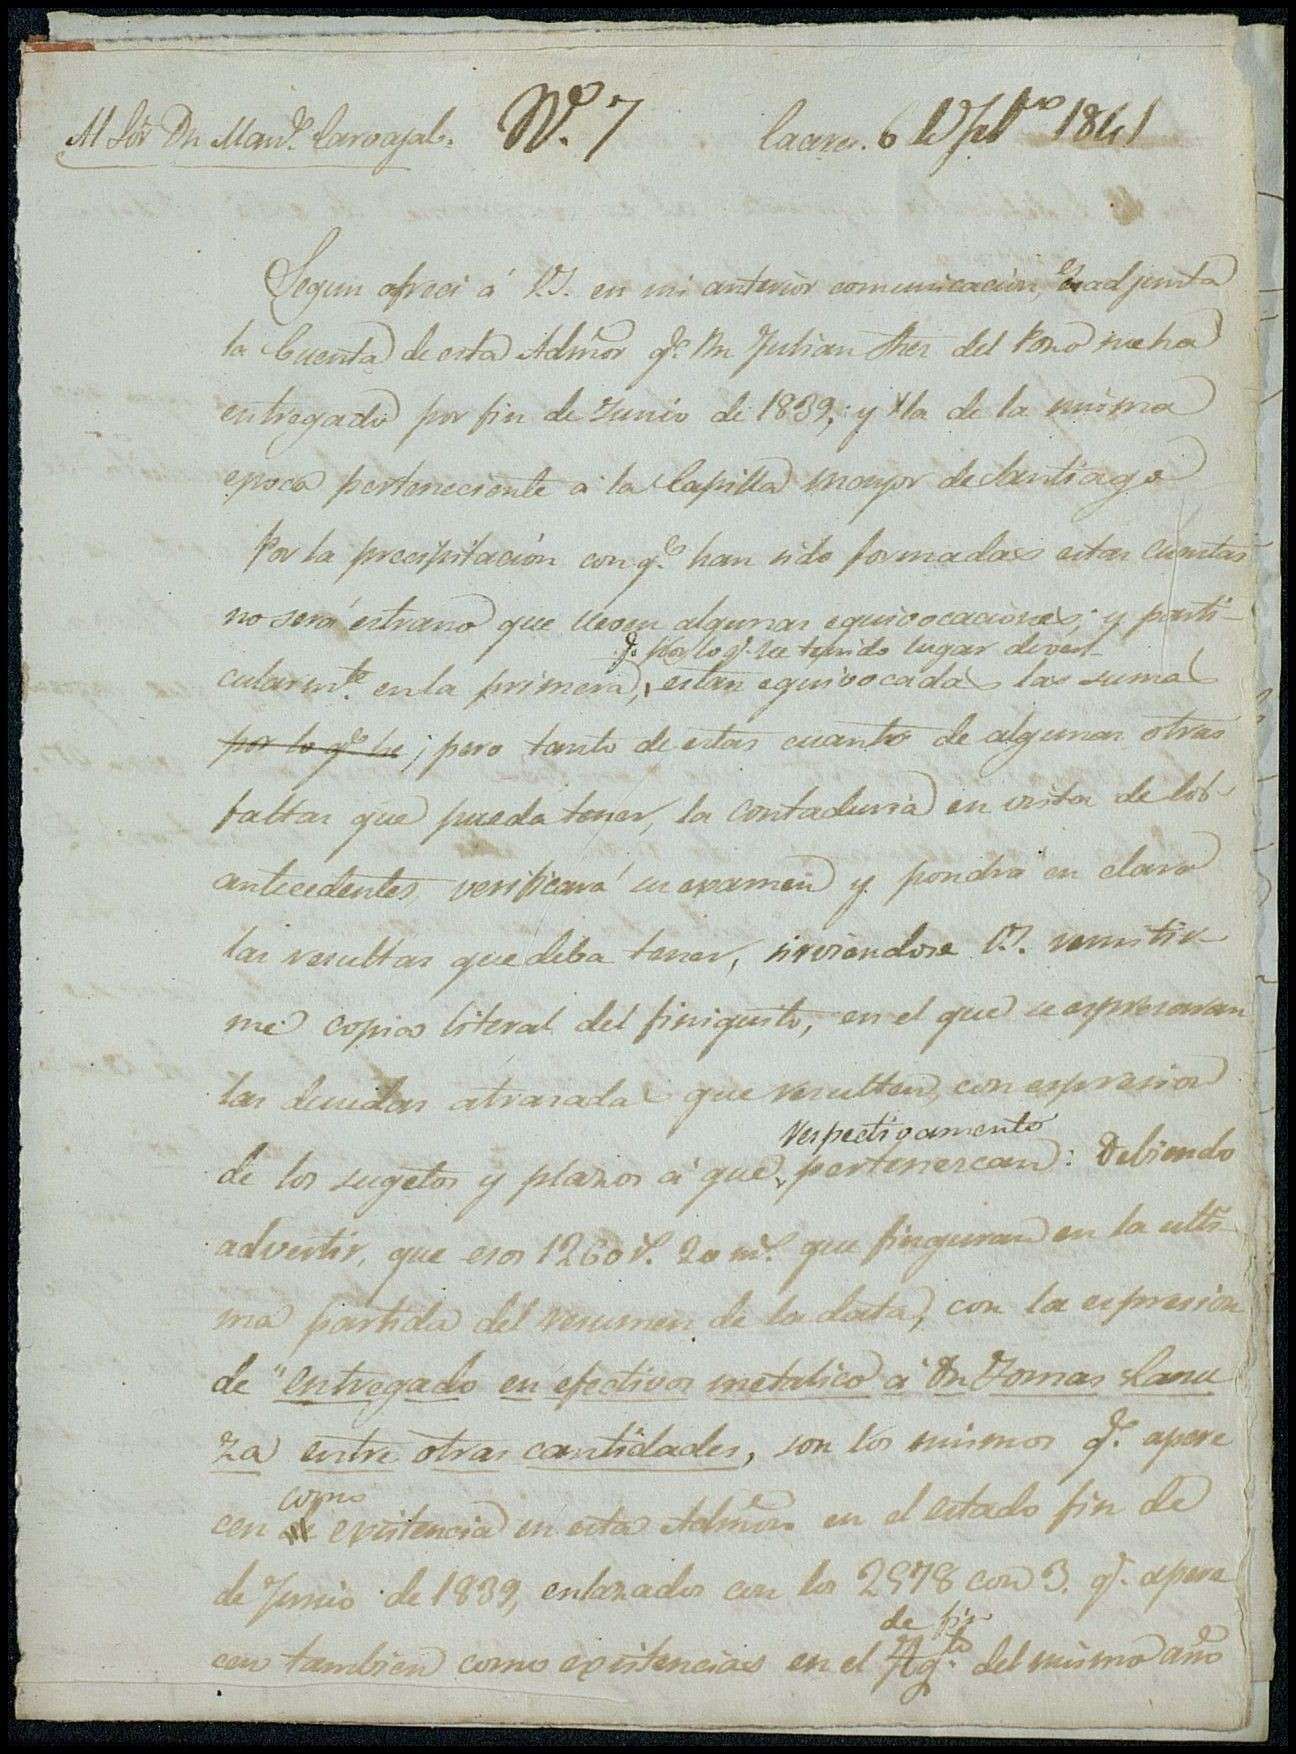 Al Sor Dn Manl. Carvajal.
Nº. 7
Caceres. 6 1841
Segun ofreci á V.S. en mi anterior comunicacion, es adjunta
la Cuenta de esta Admōn qe. Dn Julian del Pozo me ha
entregado por fin de Junio de 1839; y la de la misma
epoca perteneciente a la Capilla mayor de Santiago
Por la precipitación con qe. han sido formadas estas cuentas
no será estraño que tengan algunas equivocaciones; y parti-
qe. Por lo qe. ha tenido lugar
cularmte. en la primera, estan equivocadas las sumas
por lo qe. he; pero tanto de estas cuanto de algunas otras
faltas que pueda tener, la Contaduria en vista de los
antecedentes verificará su examen y pondrá en claro
las resultas que deba tener, sirviendose V.S. remitir-
me copia literal del finiquito, en el que se espresaran
las deudas atrasadas que resulten, con espresion
respectivamente
de los sugetos y plazos á que pertenezcan: Debiendo
advertir, que esos 1260 r. 20 m. que finguran en la ulti-
ma partida del resumen de la data, con la espresion
de "entregado en efectivo metalico á Dn Tomas Lanu
za entre otras cantidades, son los mismos qe. apare
como
cen de existencia en esta Admōn en el estado fin de
de Junio de 1839, enlazados con los 2978 con 3. qe. apare
de fin
cen tambien como existencias en el Agto. del mismo año